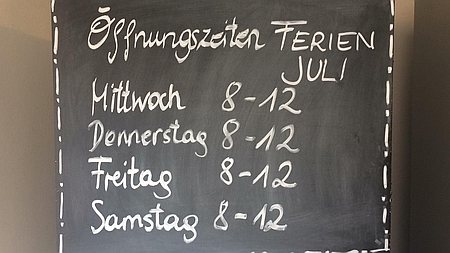 Öffnungszeiten FERIEN
JULI
Mittwoch 8-12
Donnerstag 8-12
Freitag 8-12
Samstag 8-12